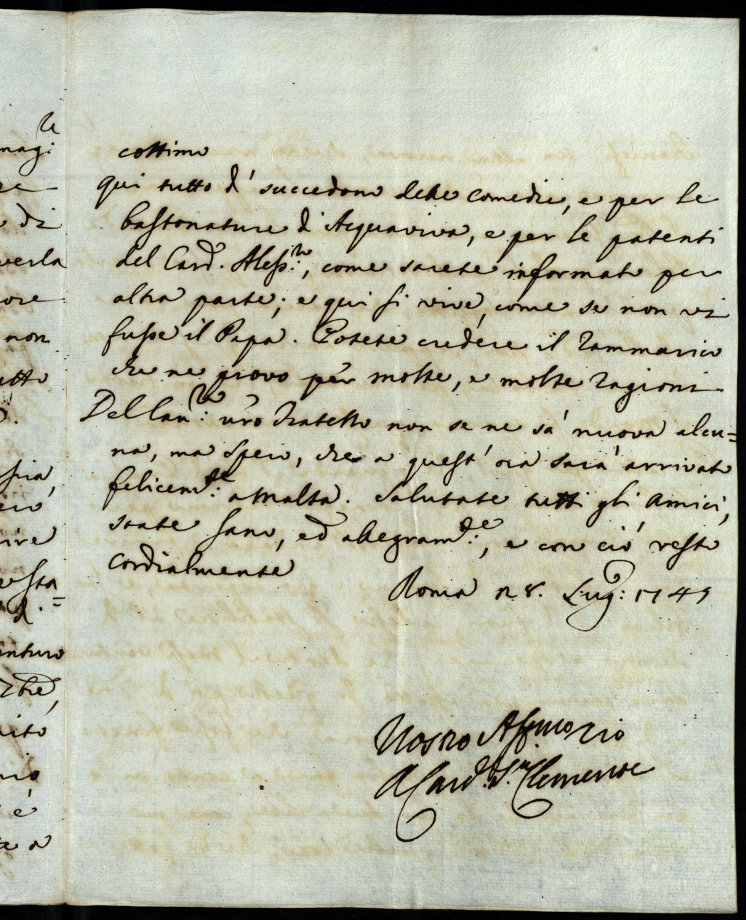 te
nagi
di
verla
ore
non
utto
sia,
ire
esta
nturo
mio
è
cottimo
qui tutto dì succedono delle comedie, e per le
bastonature d'Acquaviva, e per le patenti
del Card. Aless.ro, come sarete informato per
altra parte; e qui si vive, come se non vi
fusse il Papa. Potete credere il rammarico
che ne provo per molte, e molte ragioni
Del Com.r: vro fratello non se ne sà nuova alcu=
na, ma spero, che a quest'ora sarà arrivato
felicem.te: a Malta. Salutate tutti gli Amici,
state sano, ed allegram.te:, e con ciò resto
cordialmente
Roma n 8. Lug: 1745
Vostro Affmo Zio
A Card. S. Clemente